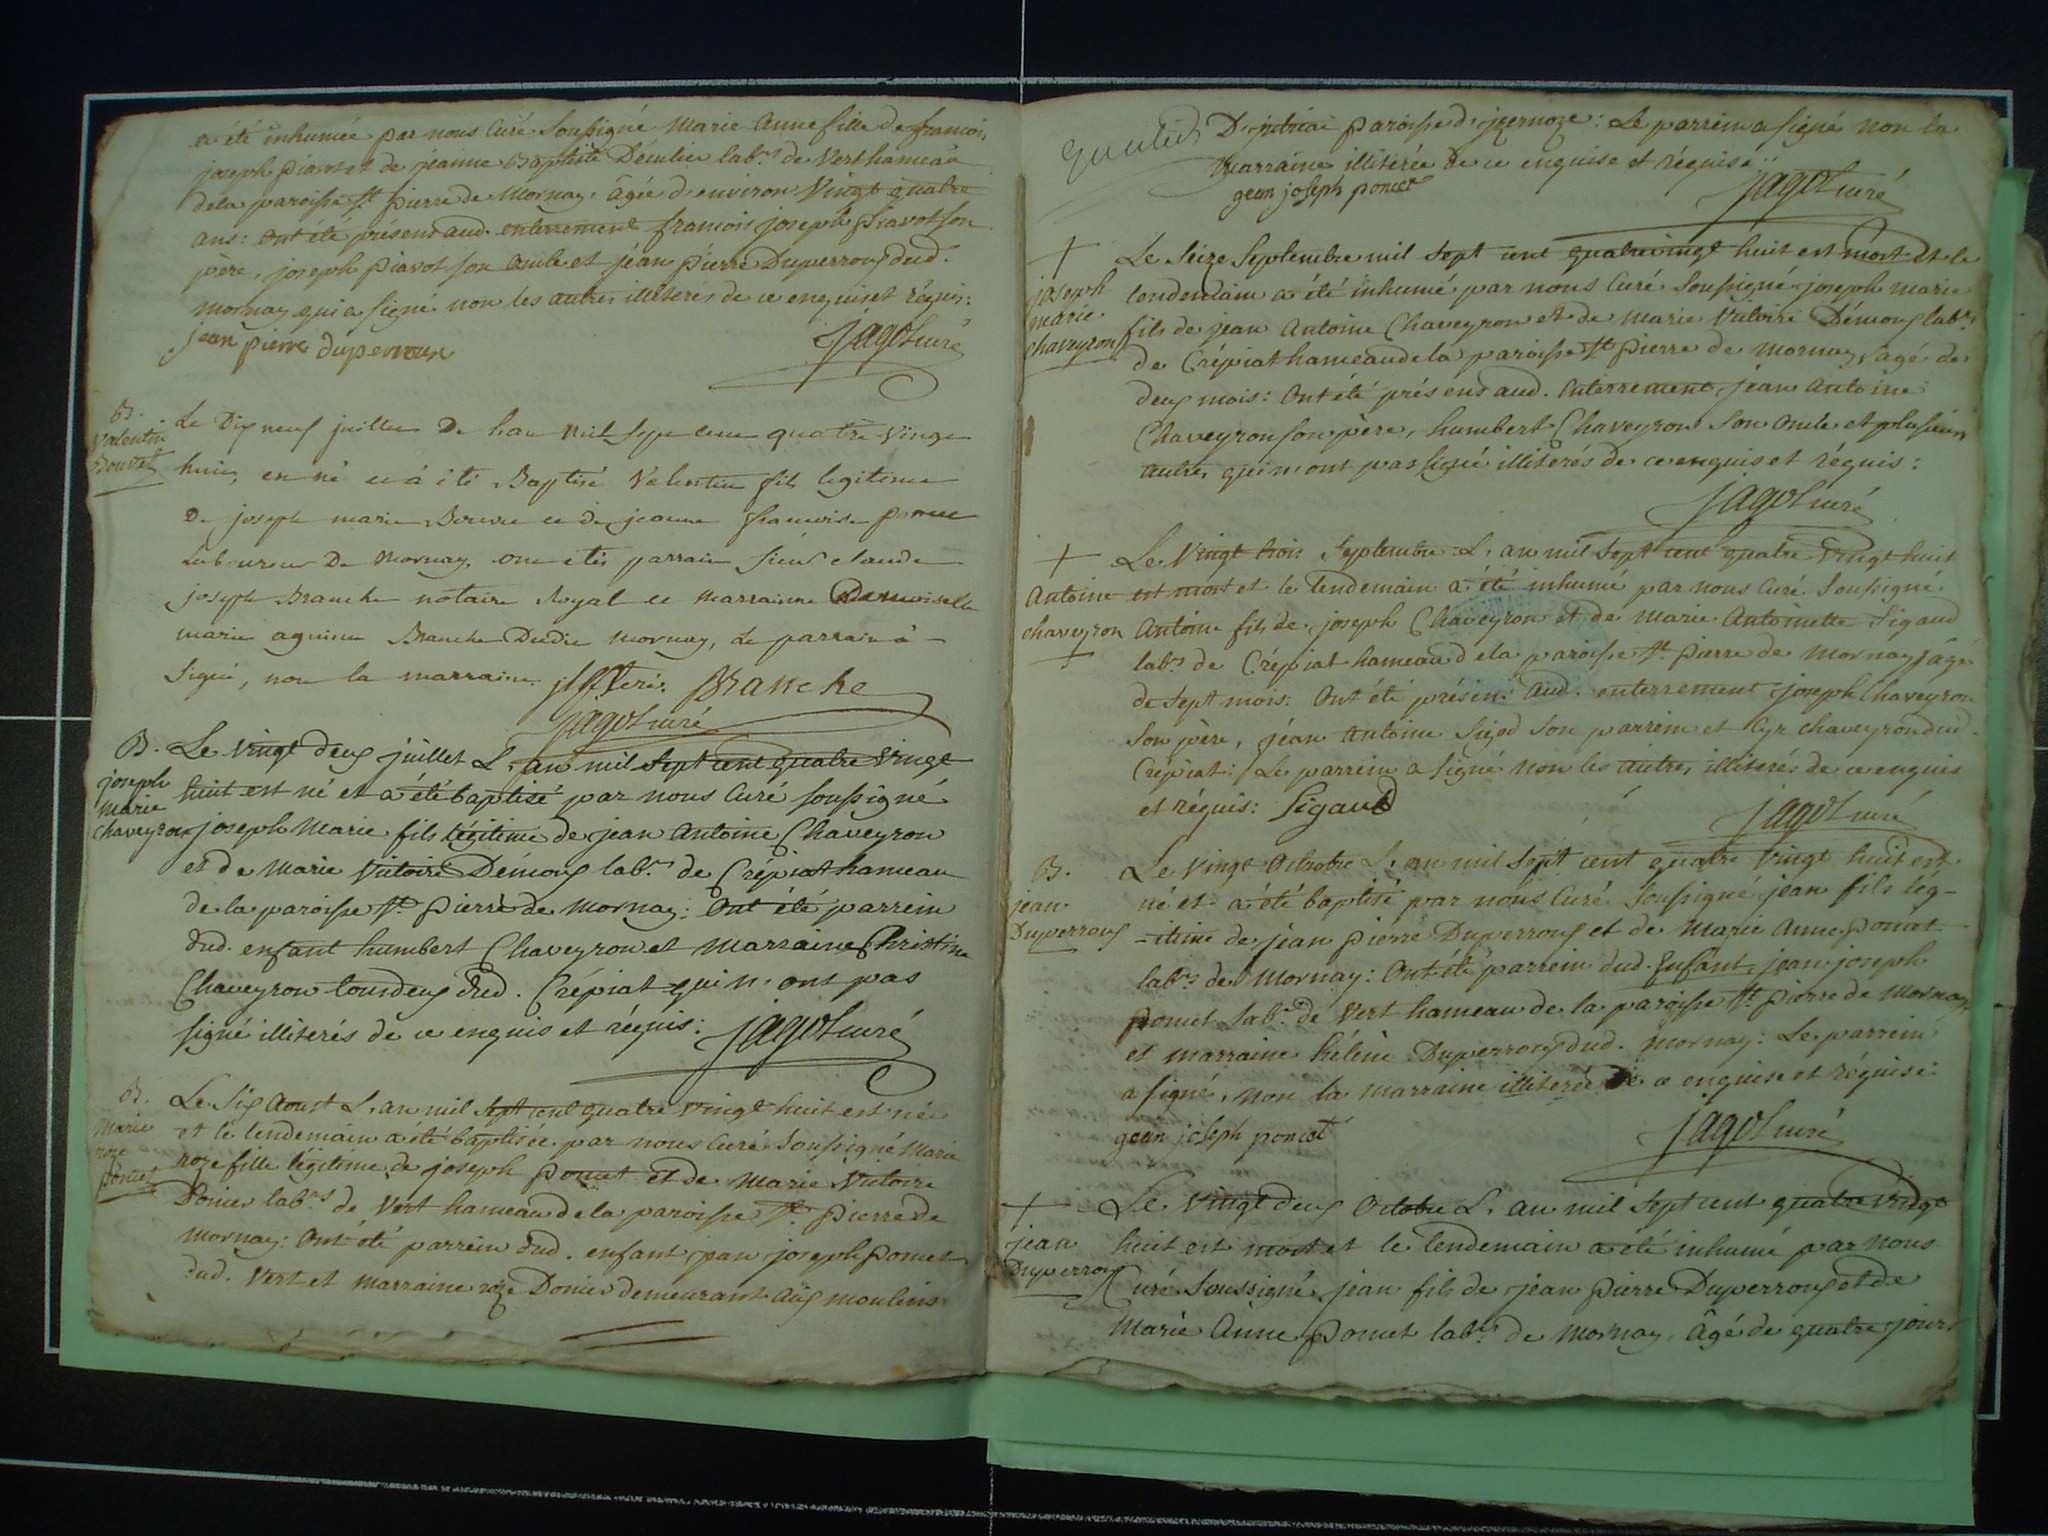 a été inhumée par nous Curé Soussigné Marie Anne fille de francois
joseph piavot et de jeanne Baptiste Décilier lab.rs de Vert hameau
de la paroisse st pierre de Mornay, âgée d'environ Vingt quatre
ans: Ont été présens aud. enterrement francois joseph piavot son
père, joseph piavot son oncle et jéan pierre Duperroux dud.
Mornay qui a signé non les autres illiterés de ce enquis et réquis:
jean pierre duperroux jagot curé
B.
Valentin
Bouvet
Le Dix neuf juillet De l'an Mil Sept cent quatre Vingt
huit, en né et à été Baptisé Valentin fils legitime
De joseph marie Bouvet et de jeanne francoise poncet
Laboureur De Mornay, ont etés parrain sieur claude
joseph Branche notaire Royal et marrainne Demoiselle
marie Branche Dudit Mornay, Le parrain à
signé, non la marraine. illiteré. Branche
jagot curé
B.
joseph
marie
chaveyron
Le vingt deux juillet L'an mil sept cent quatre vingt
huit est né et a été baptisé par nous Curé soussigné
joseph Marie fils légitime de jean Antoine Chaveyron
et de Marie Victoire Démoux lab.rs de Crépiat hameau
de la paroisse st pierre de Mornay: Ont été parrein
dud. enfant humbert Chaveyron et Marraine Christine
Chaveyron tous deux dud. Crépiat qui n'ont pas
signé illiterés de ce enquis et réquis: jagot curé
B.
Marie
roze
poncet
Le Six Aoust L'an mil sept cent quatre vingt huit est née
et le lendemain a été baptisée par nous Curé Soussigné Marie
roze fille légitime de joseph poncet et de Marie Victoire
Donier lab.rs de Vert hameau de la paroisse st pierre de
Mornay: Ont été parrein dud. enfant jean joseph poncet
dud. Vert et Marraine roze Donier demeurant aux moulins
D' paroisse d'izernoze: Le parrein a signé non la
Marraine illiterée de ce enquise et réquise:
gean joseph poncet jagot curé
joseph
marie
chaveyron
Le Seize Septembre mil sept cent quatrevingt huit est mort et le
lendemain a été inhumé par nous Curé Soussigné joseph marie
fils de jean Antoine Chaveyron et de Marie Victoire Démoux lab.rs
de Crépiat hameau de la paroisse st pierre de Mornay, âgé de
deux mois: Ont été présens aud. enterrement, jean Antoine
Chaveyron son père, humbert Chaveyron Son oncle et plusieurs
autres qui n'ont pas signé illiterés de ce enquis et réquis:
jagot curé
Antoine
chaveyron
Le Vingt trois Septembre L'an mil sept cent quatre vingt huit
est mort et le lendemain a été inhumé par nous Curé Soussigné
Antoine fils de joseph Chaveyron et de Marie Antoinette Sigaud
lab.rs de Crépiat hameau de la paroisse st pierre de Mornay, âgé
de sept mois: Ont été présens aud. enterrement joseph Chaveyron
Son père, jéan Antoine Sigod Son parrein et Cyr chaveyron dud.
Crépiat: Le parrein a signé non les autres illiterés de ce enquis
et réquis: Sigaud jagot curé
B.
jean
Duperroux
Le Vingt Octobre L'an mil sept cent quatre vingt huit est
né et a été baptisé par nous Curé Soussigné jean fils lég-
-itime de jéan pierre Duperroux et de Marie Anne poncet
lab.rs de Mornay: Ont été parrein dud. Enfant, jean joseph
poncet lab.r de Vert hameau de la paroisse st pierre de Mornay
et marraine hélène Duperroux dud. Mornay: Le parrein
a signé, non la marraine illiterée de ce enquise et réquise:
gean joseph poncet jagot curé
jean
Duperroux
Le Vingt deux Octobre L'an mil sept cent quatre vingt
huit est mort et le lendemain a été inhumé par nous
Curé Soussigné, jean fils de jéan pierre Duperroux et de
Marie Anne poncet lab.rs de Mornay, âgé de quatre jours